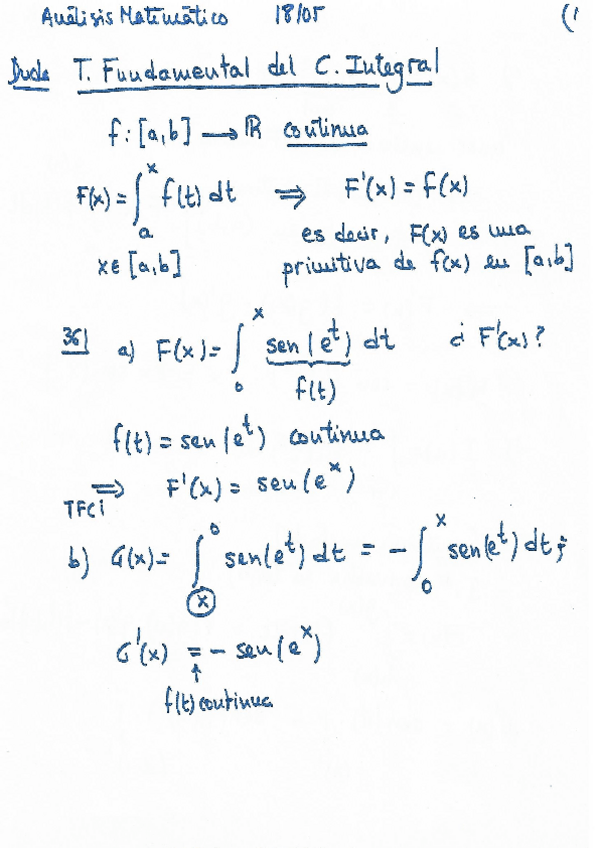 Análisis Matemático 18/05 (1
Duda T. Fundamental del C. Integral
f: [a,b] → ℝ continua
F(x) = ∫ₐˣ f(t) dt ⇒ F'(x) = f(x)
es decir, F(x) es una
x ∈ [a,b] primitiva de f(x) en [a,b]
36| a) F(x) = ∫₀ˣ sen(eᵗ) dt ¿ F'(x)?
f(t)
f(t) = sen(eᵗ) continua
⇒ F'(x) = sen(eˣ)
TFCI
b) G(x) = ∫ₓ⁰ sen(eᵗ) dt = - ∫₀ˣ sen(eᵗ) dt;
G'(x) = - sen(eˣ)
↑
f(t) continua